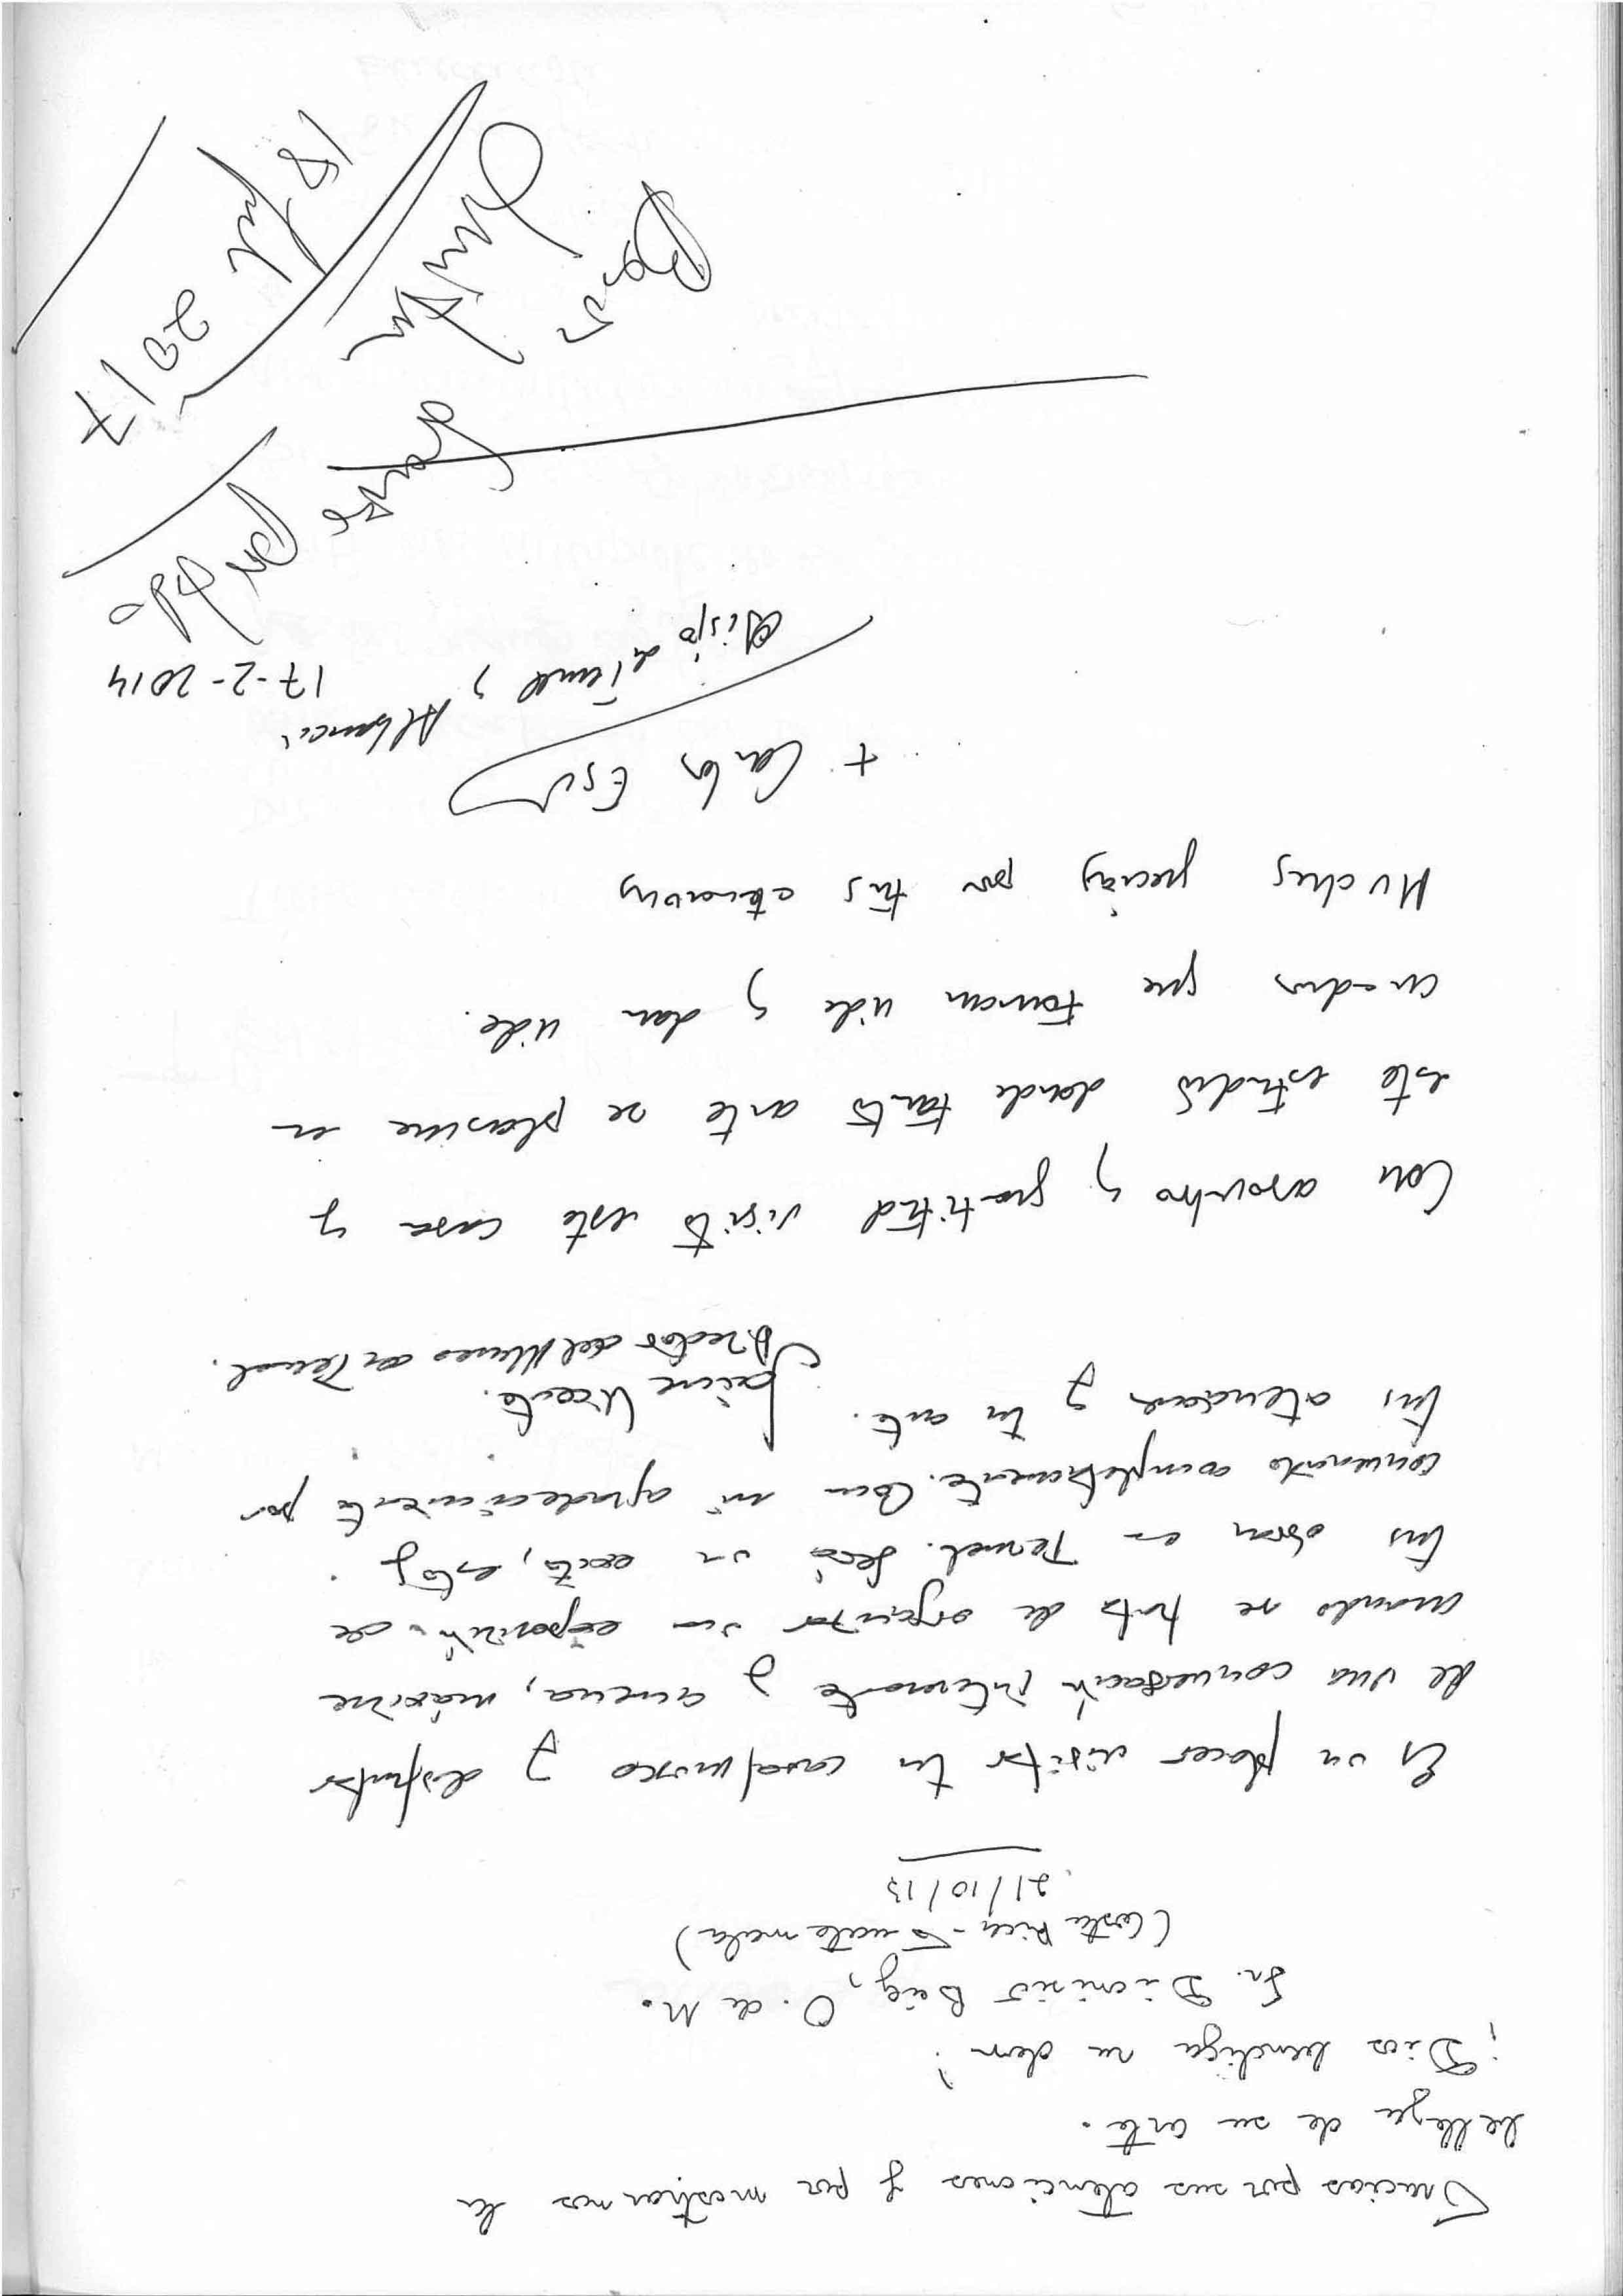 Gracias por sus atenciones y por mostrarnos la
belleza de su arte.
¡Dios bendiga su don!
Fr. Dionisio Báez, O. de M.
(Costa Rica - Guatemala)
21/10/13
Es un placer visitar tu casa/museo y disfrutar
de una conversación interesante y amena, máxime
cuando se trata de organizar una exposición de
tus obras en Teruel. Será un éxito, estoy
convencido completamente. Con mi agradecimiento por
tus atenciones y tu arte.
Jaime Vicente.
Director del Museo de Teruel.
Con asombro y gratitud visito esta casa y
este estudio donde tanto arte se plasma en
cuadros que toman vida y dan vida.
Muchas gracias por tus atenciones
+ Carlos Esc
Obispo de Teruel y Albarracín
17-2-2014
Para
Santo
18 Jul 2017